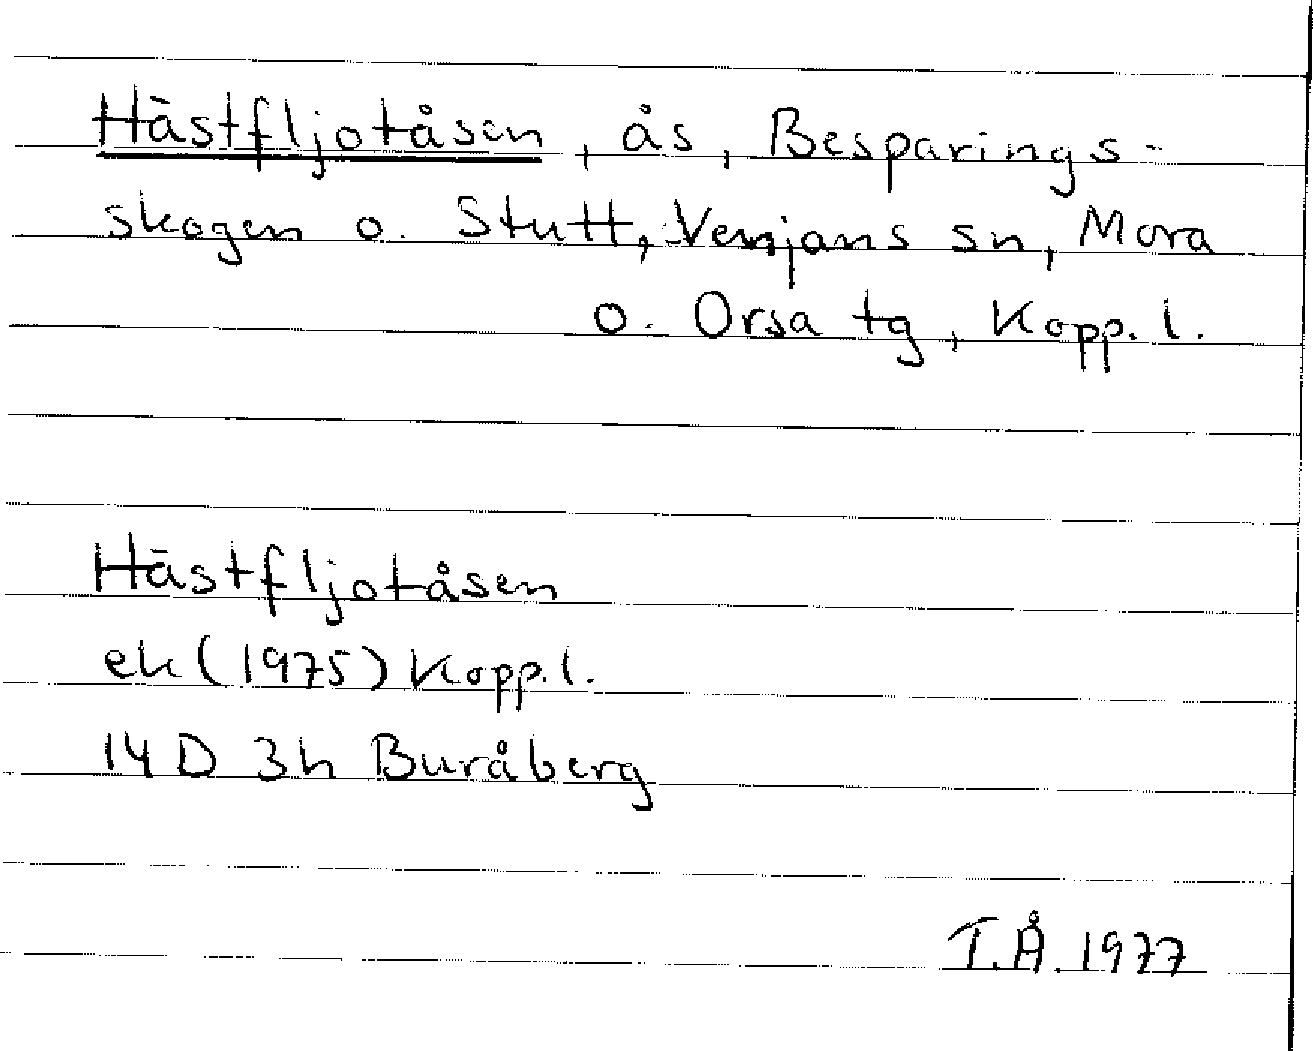 Hästfljotåsen, ås, Besparings-
skogen o. Stutt, Venjans sn, Mora
o. Orsa tg, Kopp. l.
Hästfljotåsen
ek (1975) Kopp. l.
14 D 3h Buråberg
T.Å. 1977